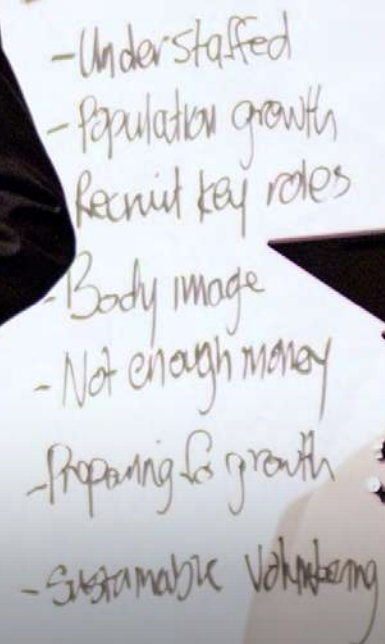 - Understaffed
- Population growth
Recruit key roles
- Body image
- Not enough money
- Preparing for growth
- Sustainable Volunteering